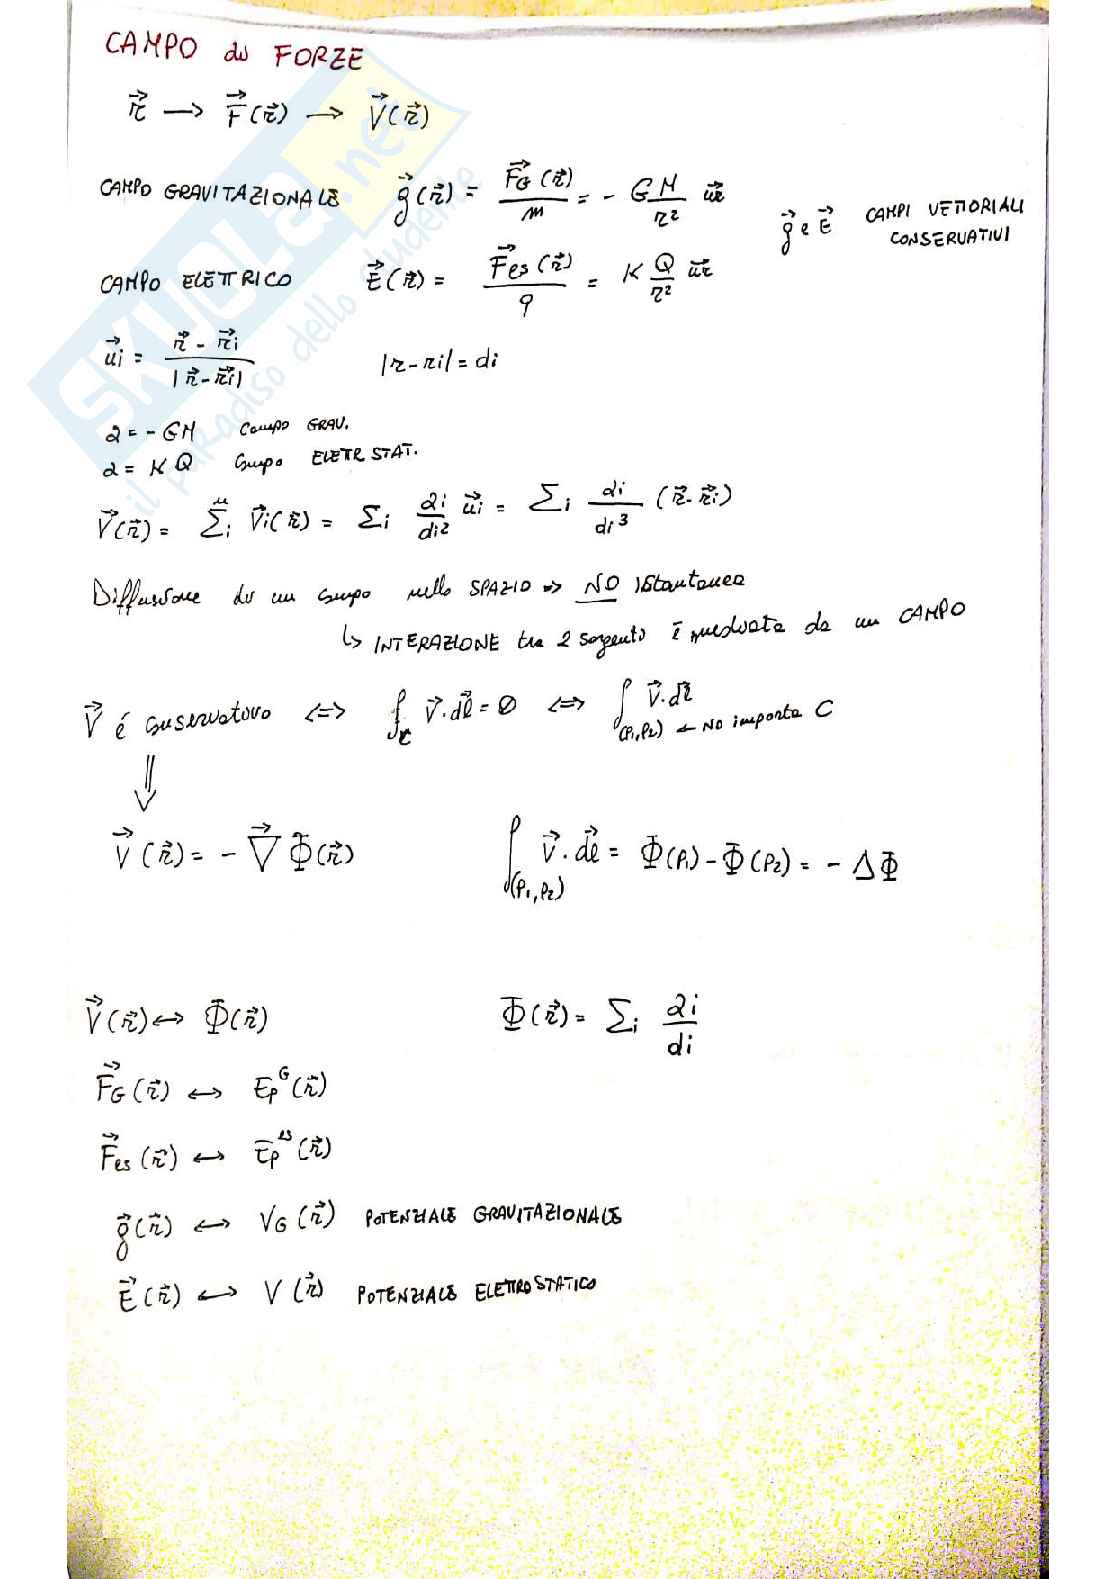 CAMPO di FORZE
r⃗ → F⃗(r⃗) → V⃗(r⃗)
CAMPO GRAVITAZIONALE g⃗(r⃗) = F⃗G(r⃗)/m = - GM/r² u⃗r
g⃗ e E⃗ CAMPI VETTORIALI CONSERVATIVI
CAMPO ELETTRICO E⃗(r⃗) = F⃗es(r⃗)/q = K Q/r² u⃗r
u⃗i = (r⃗ - r⃗i)/|r⃗ - r⃗i| |r - ri| = di
α = - GM Campo GRAV.
α = KQ Campo ELETTR STAT.
V⃗(r⃗) = Σi^n V⃗i(r⃗) = Σi αi/di² u⃗i = Σi αi/di³ (r⃗ - r⃗i)
Diffusione di un campo nello SPAZIO => NO istantanea
↳ INTERAZIONE tra 2 sorgenti è mediata da un CAMPO
V⃗ é conservativo <=> ∮C V⃗·dl⃗ = 0 <=> ∫(P1,P2) V⃗·dl⃗ ← No importa C
⇓
V⃗(r⃗) = - ∇⃗ Φ(r⃗) ∫(P1,P2) V⃗·dl⃗ = Φ(P1) - Φ(P2) = - ΔΦ
V⃗(r⃗) ↔ Φ(r⃗) Φ(r⃗) = Σi αi/di
F⃗G(r⃗) ↔ Ep^G(r⃗)
F⃗es(r⃗) ↔ Ep^es(r⃗)
g⃗(r⃗) ↔ VG(r⃗) POTENZIALE GRAVITAZIONALE
E⃗(r⃗) ↔ V(r⃗) POTENZIALE ELETTROSTATICO
SKUOLA.net
il paradiso dello studente